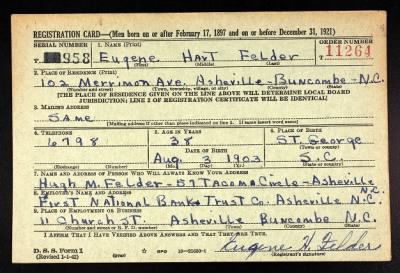 REGISTRATION CARD—(Men born on or after February 17, 1897 and on or before December 31, 1921)
SERIAL NUMBER 1. NAME (Print) ORDER NUMBER
T 958 Eugene Hart Felder T 11264
(First) (Middle) (Last)
2. PLACE OF RESIDENCE (Print)
102 Merrimon Ave. Asheville-Buncombe-N.C.
(Number and street) (Town, township, village, or city) (County) (State)
[THE PLACE OF RESIDENCE GIVEN ON THE LINE ABOVE WILL DETERMINE LOCAL BOARD
JURISDICTION; LINE 2 OF REGISTRATION CERTIFICATE WILL BE IDENTICAL]
3. MAILING ADDRESS
Same
[Mailing address if other than place indicated on line 2. If same insert word same]
4. TELEPHONE 5. AGE IN YEARS 6. PLACE OF BIRTH
6798 38 St. George
DATE OF BIRTH (Town or county)
Aug. 3 1903 S.C.
(Exchange) (Number) (Mo.) (Day) (Yr.) (State or country)
7. NAME AND ADDRESS OF PERSON WHO WILL ALWAYS KNOW YOUR ADDRESS
Hugh M. Felder-57 Tacoma Circle-Asheville N.C.
8. EMPLOYER'S NAME AND ADDRESS
First National Bank & Trust Co. Asheville N.C.
9. PLACE OF EMPLOYMENT OR BUSINESS
11 Church St. Asheville Buncombe N.C.
(Number and street or R. F. D. number) (Town) (County) (State)
I AFFIRM THAT I HAVE VERIFIED ABOVE ANSWERS AND THAT THEY ARE TRUE.
D. S. S. Form 1
(Revised 1-1-42) (over) GPO Eugene H. Felder
(Registrant's signature)